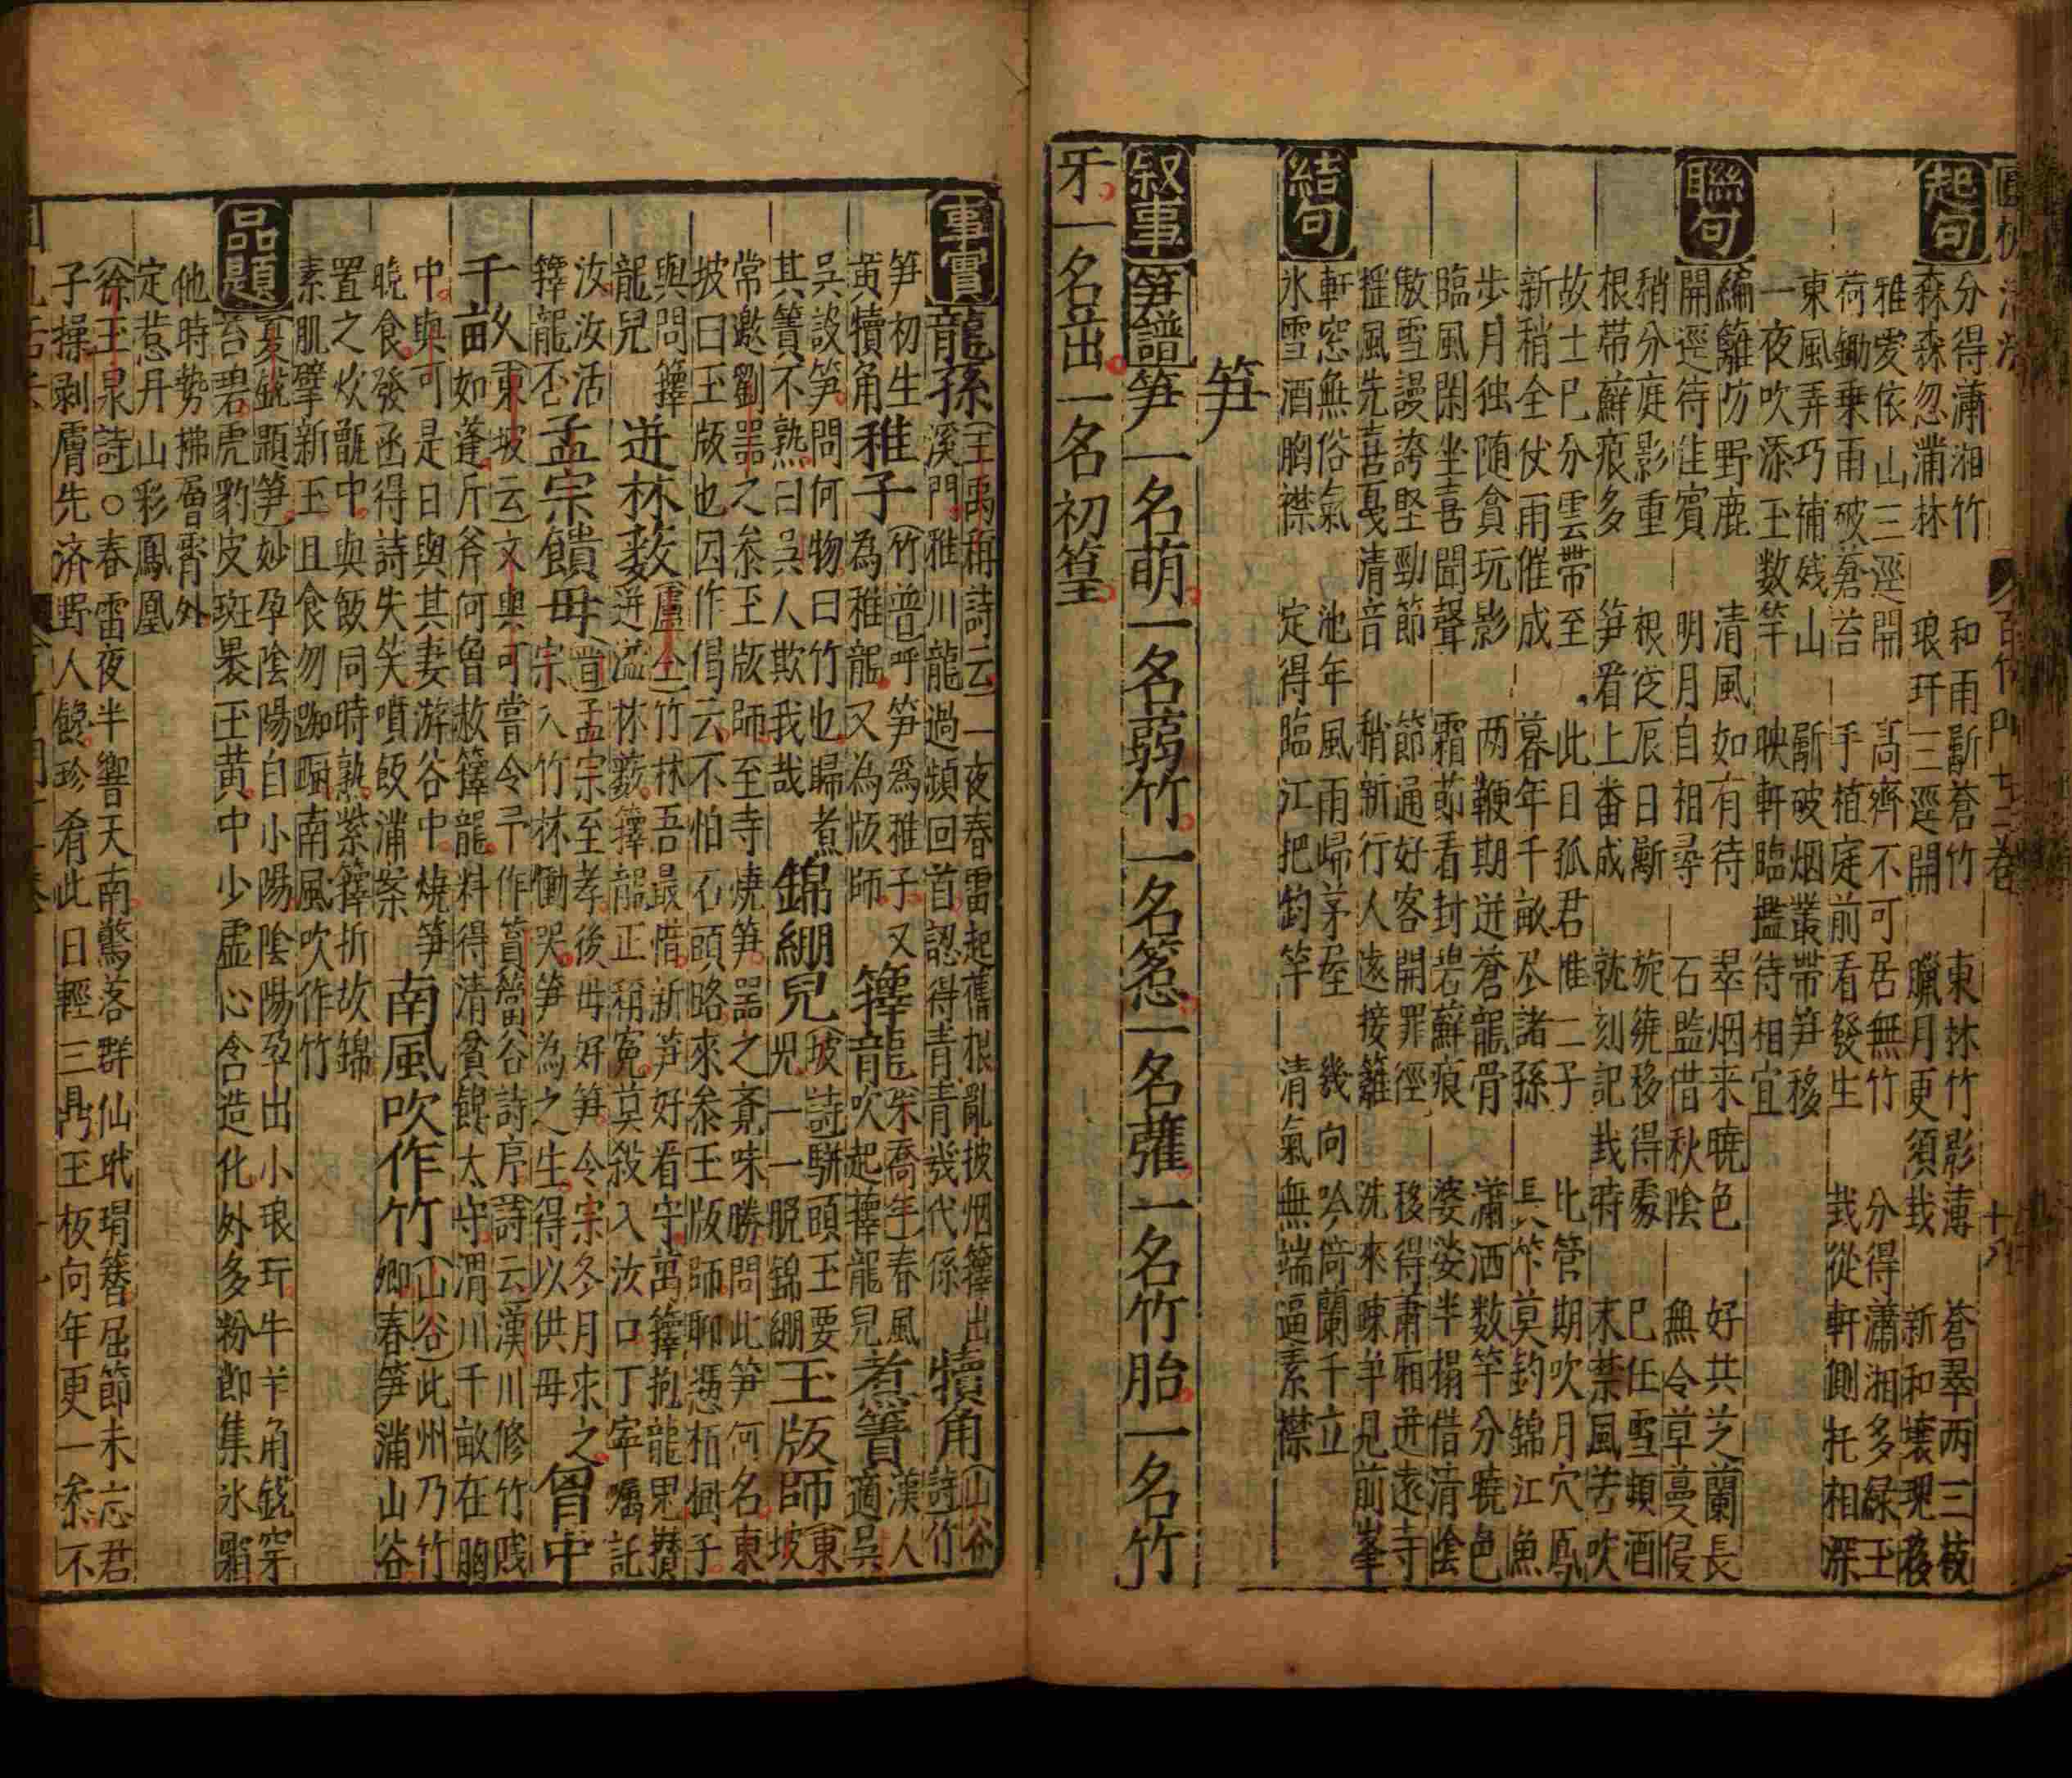 起句
分得瀟湘竹 和雨斸蒼竹 東林竹影薄 蒼翠两三枝
森森忽滿林 琅玕三逕開 臘月更須栽 新和壤現移
雅愛依山三逕開 高齊不可居無竹 分得瀟湘多緑玉
荷鋤乗雨破蒼苔 手植庭前看發生 栽從軒側托相深
東風弄巧補残山 斸破烟叢帶笋移
一夜吹添玉数竿 映軒臨檻待相宜
聮句
編籬防野鹿 清風如有待 翠烟来曉色 好共芝蘭長
開逕待佳賓 明月自相尋 石監借秋陰 無令草蔓侵
稍分庭影重 根従辰日斸 旋繞移得處 已任雪頬酒
根帯蘚痕多 笋看上番成 就刻記栽時 末禁風苦吹
故士已分雲帶至 此日孤君惟二子 比管期吹月穴鳳
新稍全仗雨催成 暮年千畝尽諸孫 長竹莫釣錦江魚
步月独随貪玩影 两鞭期迸蒼龍骨 瀟洒数竿分曉色
臨風閑坐喜聞聲 霜莭看封碧蘚痕 婆娑半榻借清陰
傲雪謾誇堅勁節 節通好客開罪徑 移得蕭廂迸遠寺
揺風先喜戞清音 稍新行人遠接籬 洗來疎笋見前峯
結句
軒窓無俗氣 池年風雨歸茅屋 幾向吟倚蘭千立
氷雪洒胸襟 定得臨江把釣竿 清氣無端逼素襟
笋
叙事 笋譜 笋一名萌一名蒻竹一名䇾一名虇一名竹胎一名竹
牙一名茁一名初篁
事實 龍孫 (王禹偁詩云)一夜春雷起舊根亂披烟籜出
溪門雅川龍過頻回首認得青青幾代係 犢角 (山谷
詩竹
笋初生
黄犢角 稚子 (竹普)呼笋爲雅子又
為稚龍又為版師 籜龍 (朱喬年)春風
吹起籜龍兒 煮簀 漢人
適吳
吳設笋問何物曰竹也歸煮
其簀不熟曰吳人欺我哉 錦綳兒 (坡詩)駢頭玉
兒一一脱錦綳 玉版師 (東
坡
常邀劉器之叅玉版師至寺燒笋器之覔味勝問此笋何名東
坡曰玉版也因作偈云不怕石頭略來叅玉版師聊憑栢樹子
與問籜
龍兒 迸林薮 (盧仝)竹林吾最惜新笋好看守萬籜抱龍兒攅
迸溢林藪籜龍正稱寃莫殺入汝口丁寕囑託
汝汝活
籜龍否 孟宗饋母 (宣)孟宗至孝後母好笋令宗冬月求之
宗入竹林慟哭笋為之生得以供母 胷中
千畝 (東坡云)文與可嘗令予作篔簹谷詩序(詩云)漢川修竹賤
如蓬斤斧何曽赦籜龍料得清貧饞太守渭川千畝在胸
中與可是日與其妻游谷中燒笋
晚食發函得詩失笑噴飯滿案 南風吹作竹 (山谷)此州乃竹
鄉春笋滿山谷
置之炊甑中與飯同時熟紫籜折故錦
素肌擘新玉且食勿踟蹰南風吹作竹
品題 (夏銑題笋)妙孕陰陽自小陽陰陽孕出小琅玕牛羊角銳穿
苔碧虎豹皮斑褁玉黄中少虚心含造化外多粉節集氷霜
他時勢拂層霄外
定惹丹山彩鳳凰
(徐玉泉詩)○春雷夜半響天南驚落群仙玳瑁簪屈節未忘君
子操剥膚先済野人饞珍肴此日輕三鼎玉板向年更一叅不
百竹門十二巻 十八